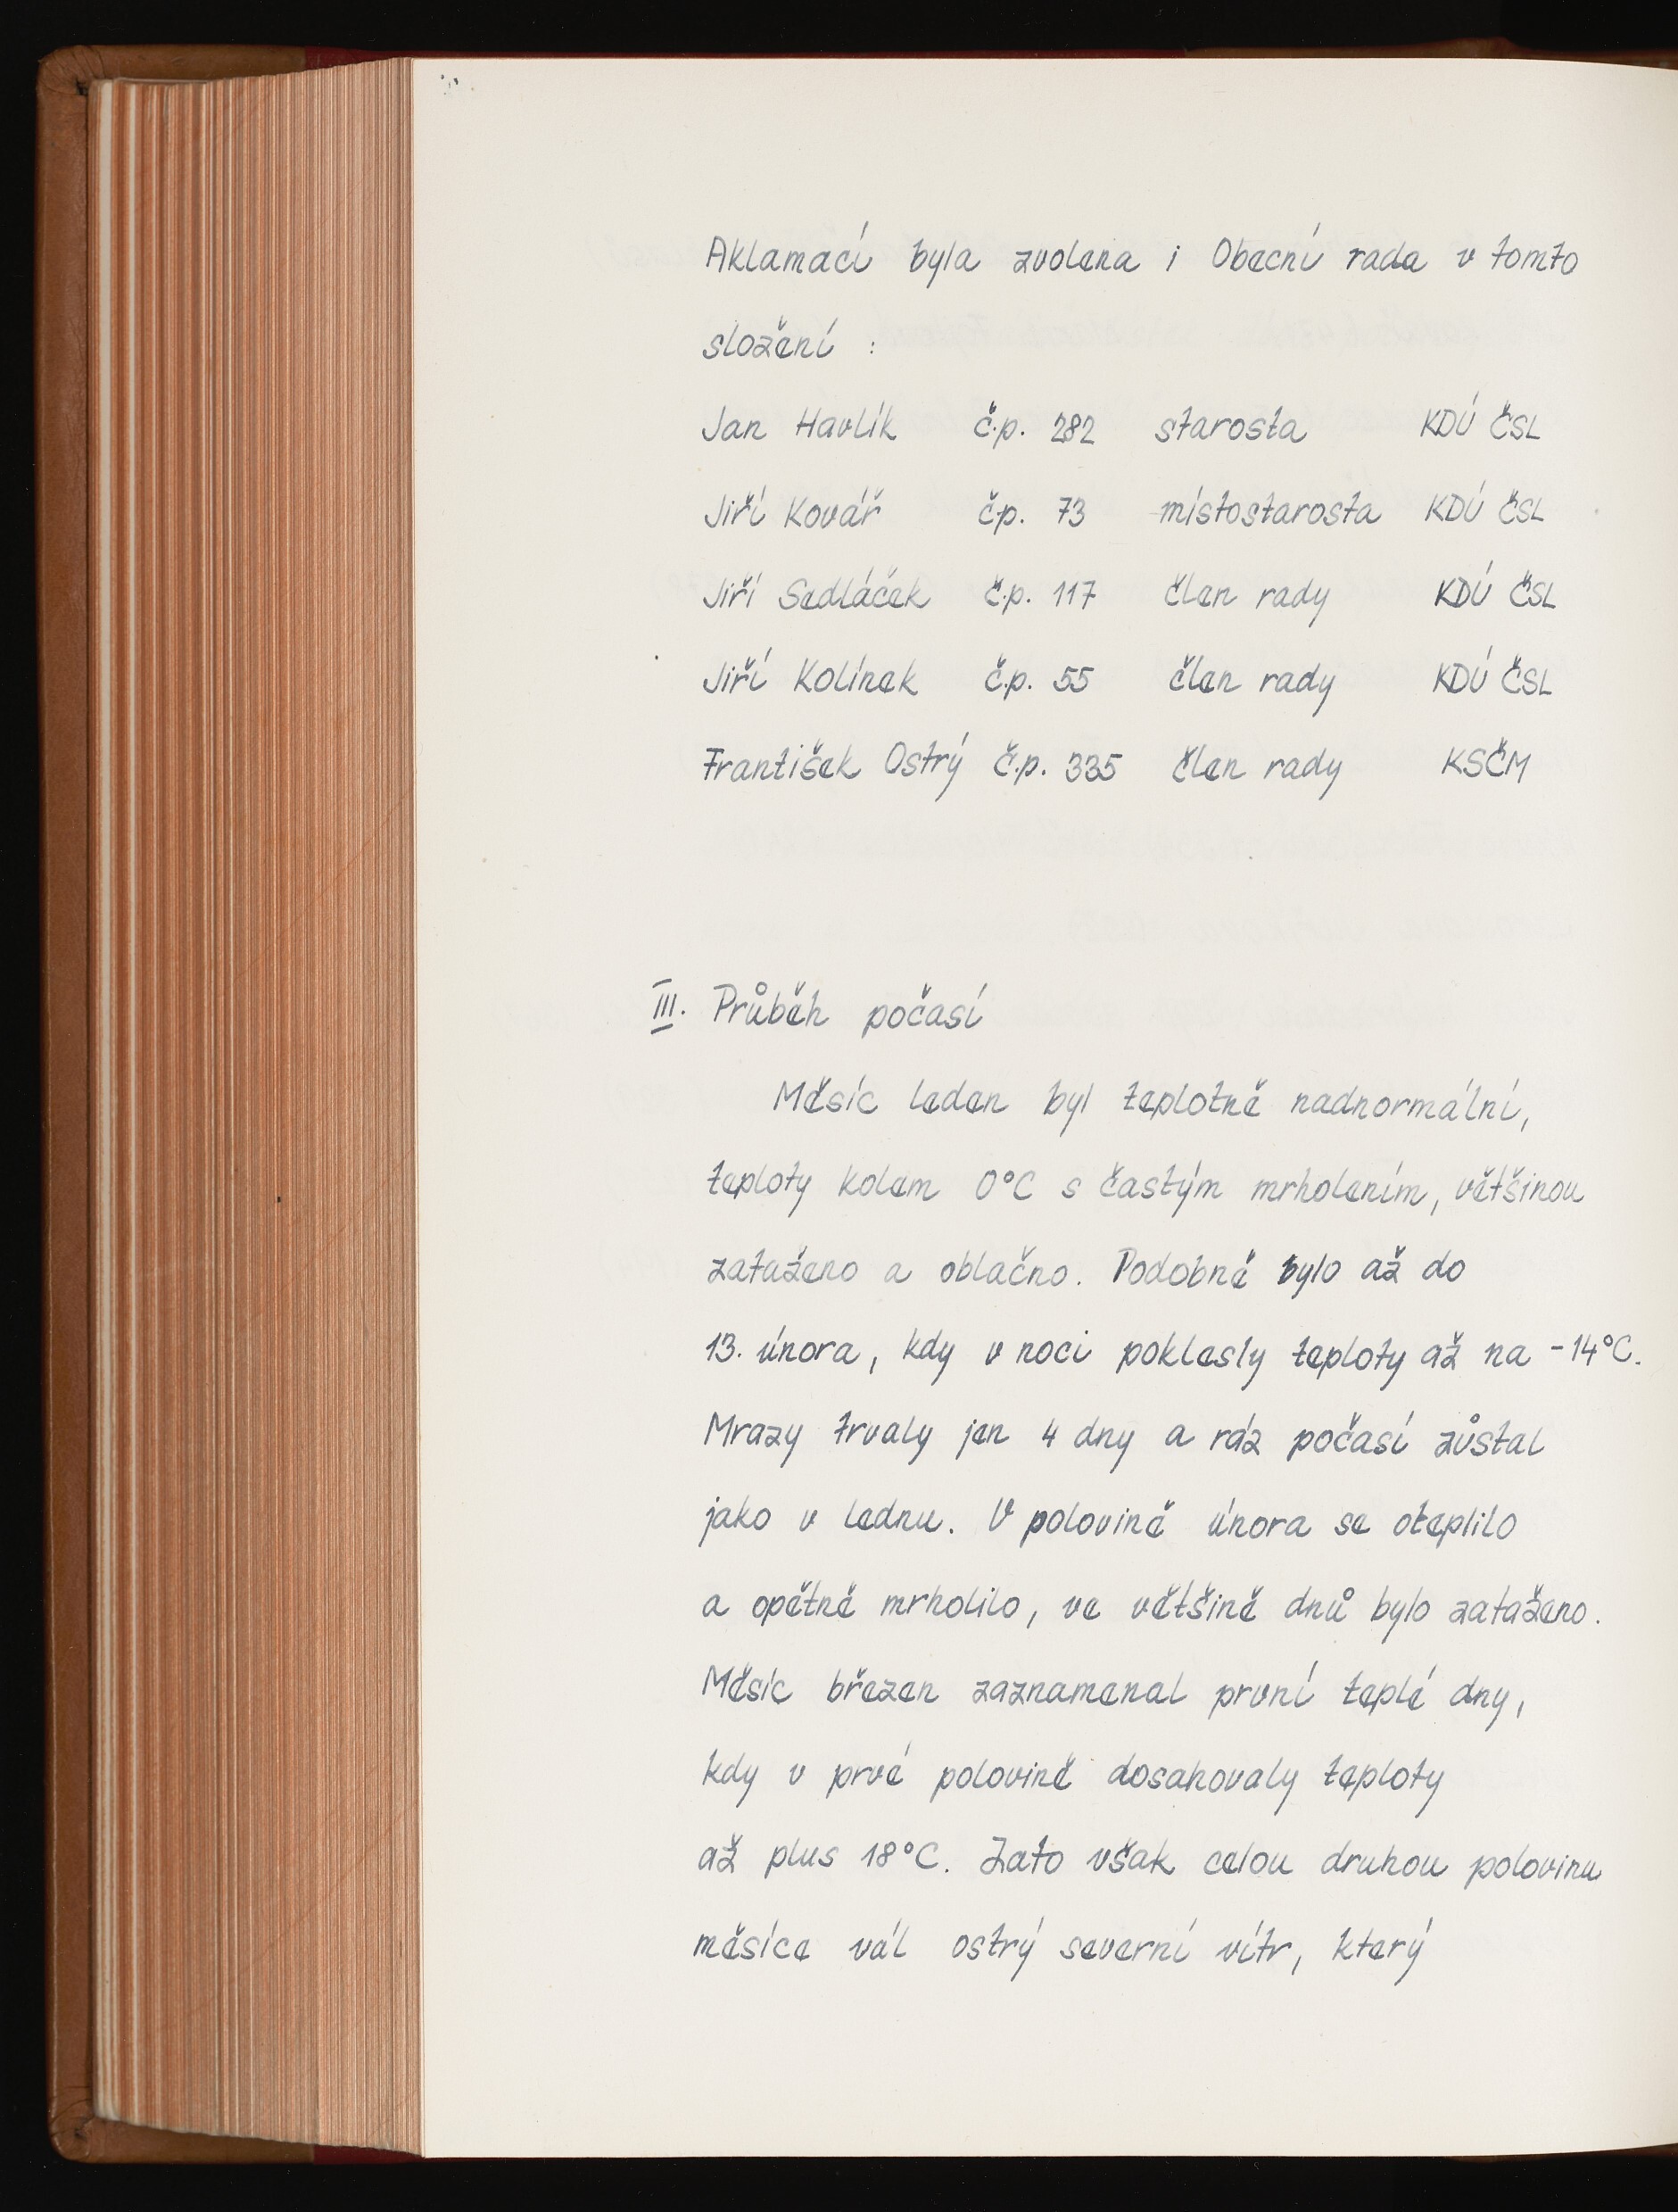 Aklamací byla zvolena i Obecní rada v tomto
složení :
Jan Havlík č.p. 282 starosta KDÚ ČSL
Jiří Kovář čp. 73 místostarosta KDÚ ČSL
Jiří Sedláček č.p. 117 člen rady KDÚ ČSL
Jiří Kolínek č.p. 55 člen rady KDÚ ČSL
František Ostrý č.p. 335 člen rady KSČM
III. Průběh počasí
Měsíc leden byl teplotně nadnormální,
teploty kolem 0°C s častým mrholením, většinou
zataženo a oblačno. Podobně bylo až do
13. února, kdy v noci poklesly teploty až na -14°C.
Mrazy trvaly jen 4 dny a ráz počasí zůstal
jako v lednu. V polovině února se oteplilo
a opětně mrholilo, ve většině dnů bylo zataženo.
Měsíc březen zaznamenal první teplé dny,
kdy v prvé polovině dosahovaly teploty
až plus 18°C. Zato však celou druhou polovinu
měsíce vál ostrý severní vítr, který